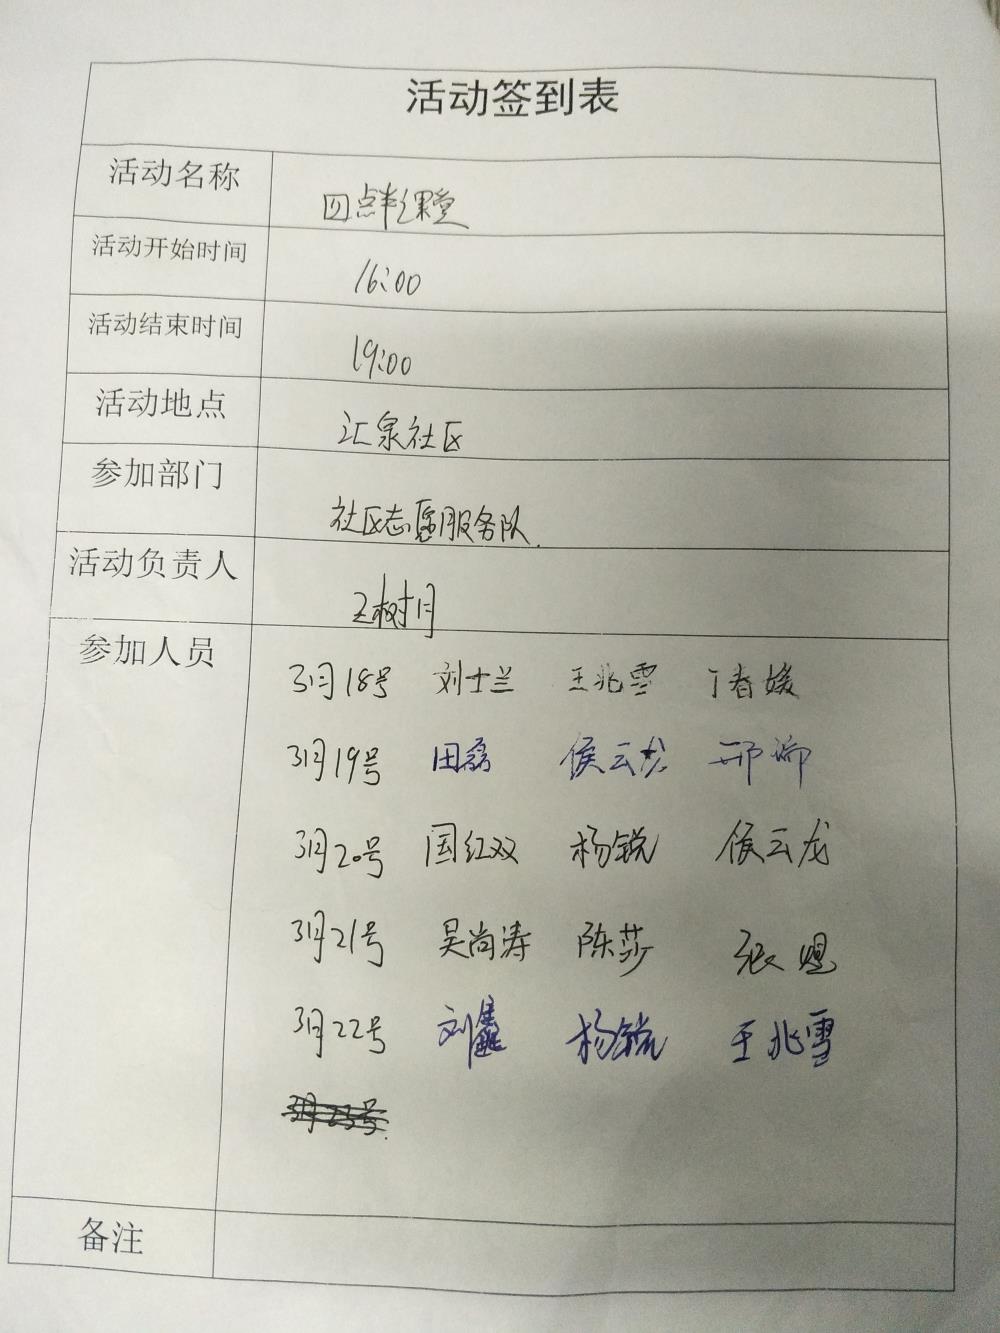 活动签到表
活动名称 四点半课堂
活动开始时间 16:00
活动结束时间 19:00
活动地点 汇泉社区
参加部门 社区志愿服务队.
活动负责人 王树月
参加人员
3月18号 刘士兰 王兆雪 丁春媛
3月19号 田磊 侯云龙 邢
3月20号 国红双 杨锐 侯云龙
3月21号 吴尚涛 陈莎 张
3月22号 刘鑫 杨锐 王兆雪
3月23号.
备注